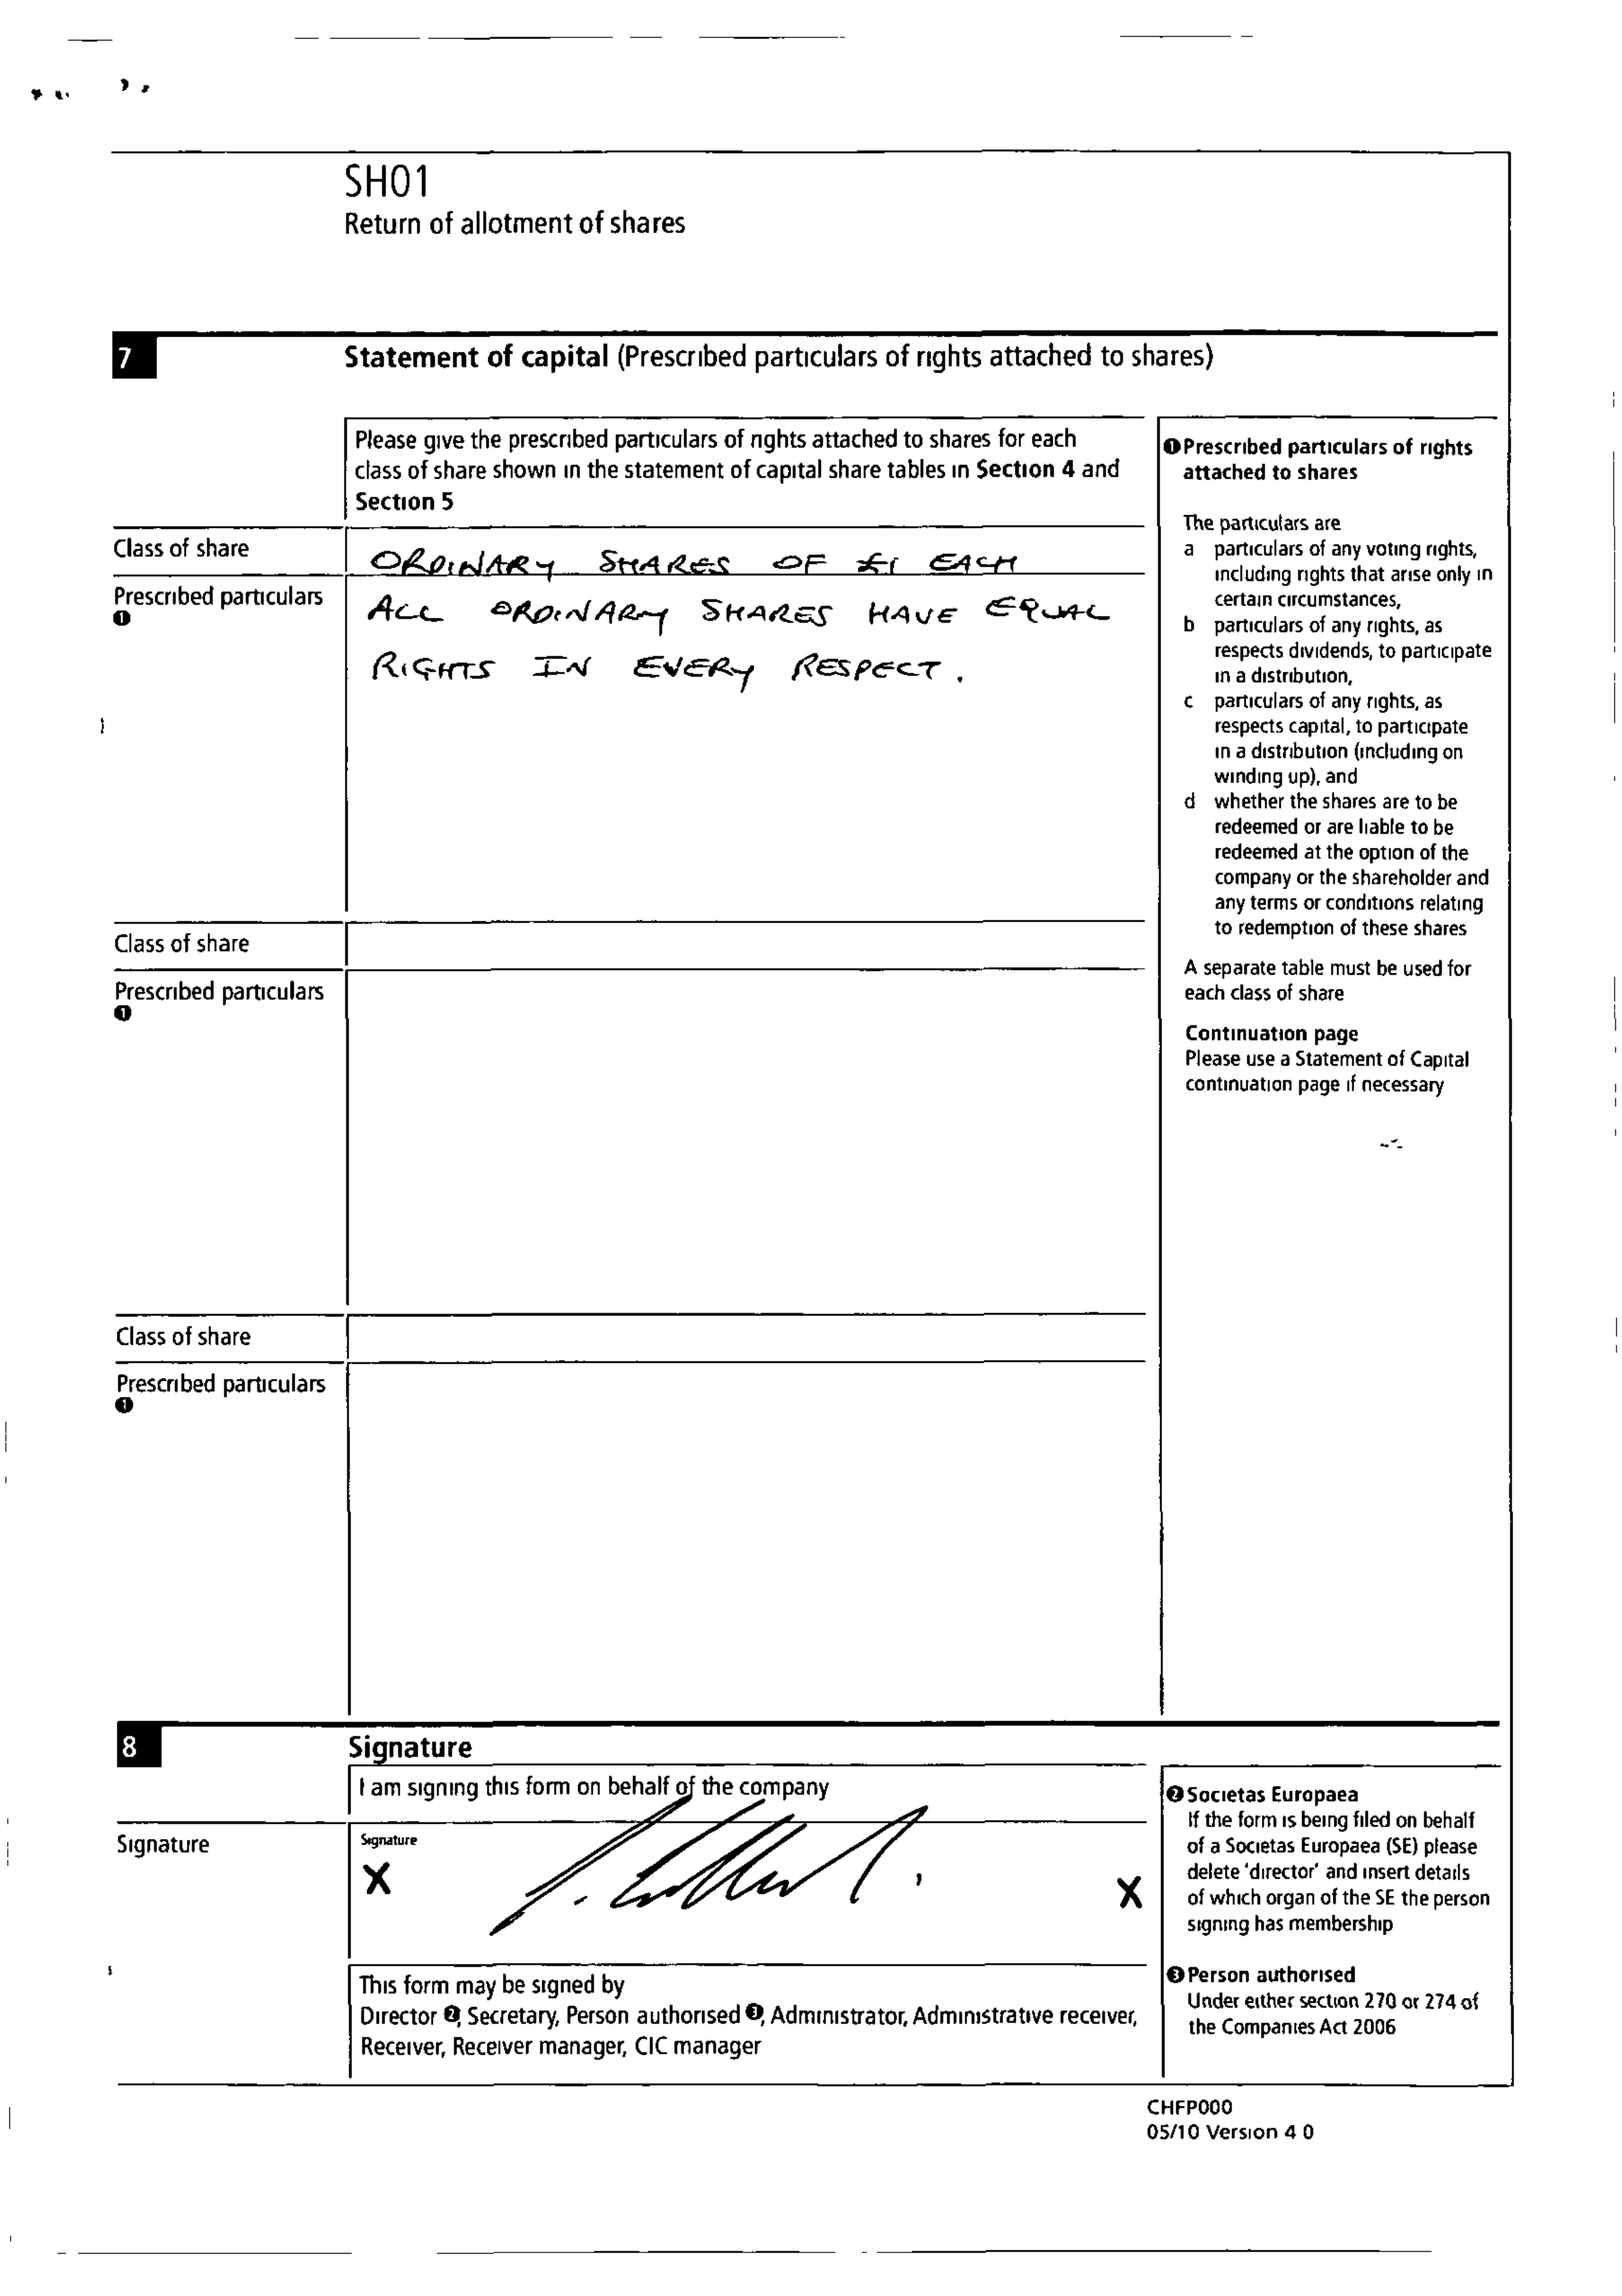 SH01
Return of allotment of shares
7
Statement of capital (Prescribed particulars of rights attached to shares)
Please give the prescribed particulars of rights attached to shares for each
class of share shown in the statement of capital share tables in Section 4 and
Section 5
Class of share
ORDINARY SHARES OF £1 EACH
Prescribed particulars
❶
ALL ORDINARY SHARES HAVE EQUAL
RIGHTS IN EVERY RESPECT.
Class of share
Prescribed particulars
❶
Class of share
Prescribed particulars
❶
❶ Prescribed particulars of rights
attached to shares
The particulars are
a particulars of any voting rights,
including rights that arise only in
certain circumstances,
b particulars of any rights, as
respects dividends, to participate
in a distribution,
c particulars of any rights, as
respects capital, to participate
in a distribution (including on
winding up), and
d whether the shares are to be
redeemed or are liable to be
redeemed at the option of the
company or the shareholder and
any terms or conditions relating
to redemption of these shares
A separate table must be used for
each class of share
Continuation page
Please use a Statement of Capital
continuation page if necessary
8
Signature
I am signing this form on behalf of the company
Signature
Signature
X
X
This form may be signed by
Director ❷, Secretary, Person authorised ❸, Administrator, Administrative receiver,
Receiver, Receiver manager, CIC manager
❷ Societas Europaea
If the form is being filed on behalf
of a Societas Europaea (SE) please
delete 'director' and insert details
of which organ of the SE the person
signing has membership
❸ Person authorised
Under either section 270 or 274 of
the Companies Act 2006
CHFP000
05/10 Version 4 0